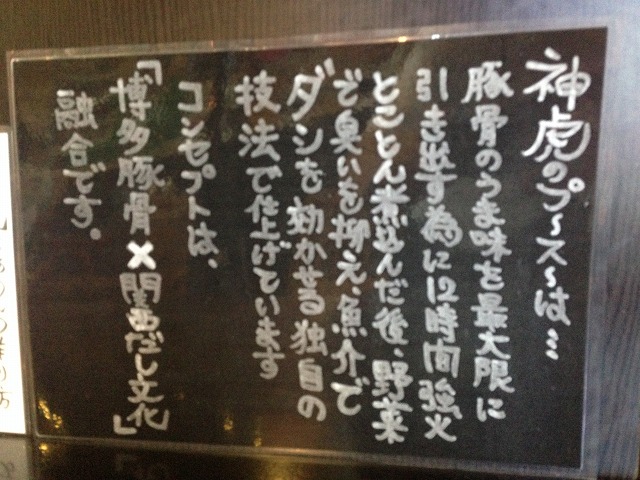 神虎のプ～ス～は…
豚骨のうま味を最大限に
引き出す為に12時間強火
とことん煮込んだ後、野菜
で臭いを抑え、魚介で
ダシを効かせる独自の
技法で仕上げています
コンセプトは、
「博多豚骨×関西だし文化」
融合です。